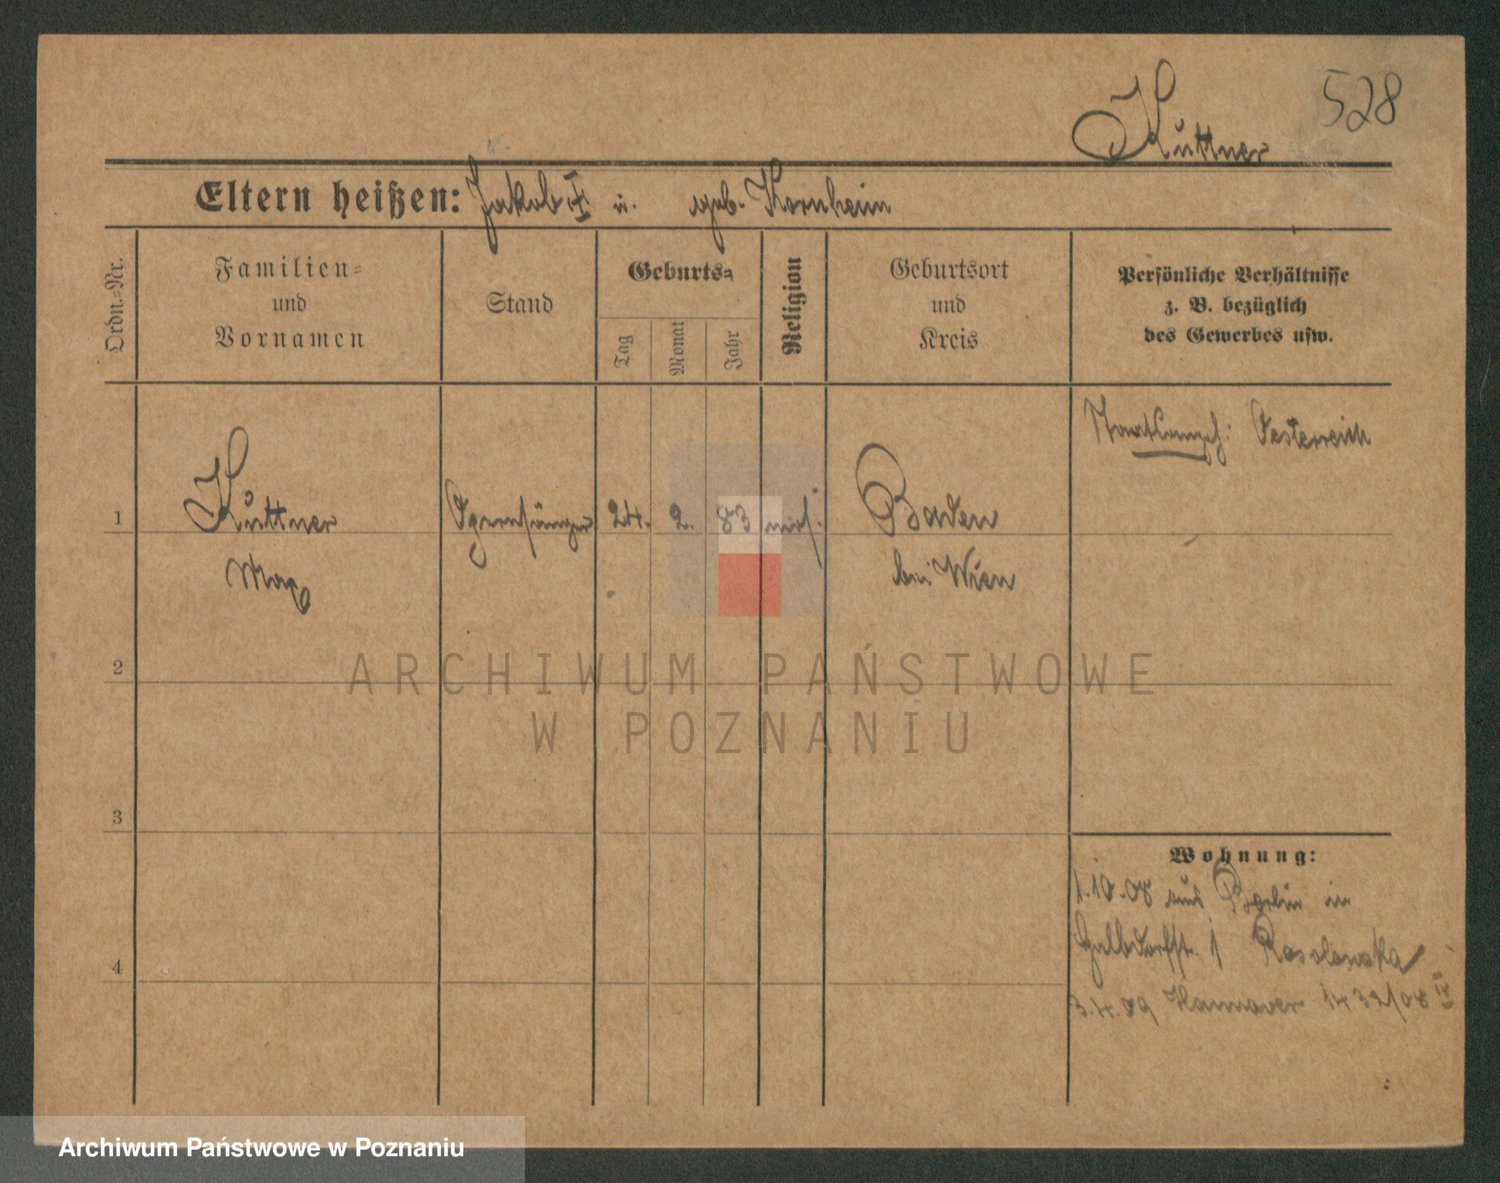 528
Küttner
Eltern heißen: Jakob † u. geb. Kornheim
Ordn.-Nr.
Familien- und Vornamen
Stand
Geburts-
Tag
Monat
Jahr
Religion
Geburtsort und Kreis
Persönliche Verhältnisse
z. B. bezüglich
des Gewerbes usw.
Oesterreich
1 Küttner Opernsänger 24. 2. 83 mos. Baden
Max bei Wien
2
ARCHIWUM PAŃSTWOWE
W POZNANIU
3
Wohnung:
1.10.08 aus Berlin in
4
1
3.4.09 Hannover
Archiwum Państwowe w Poznaniu